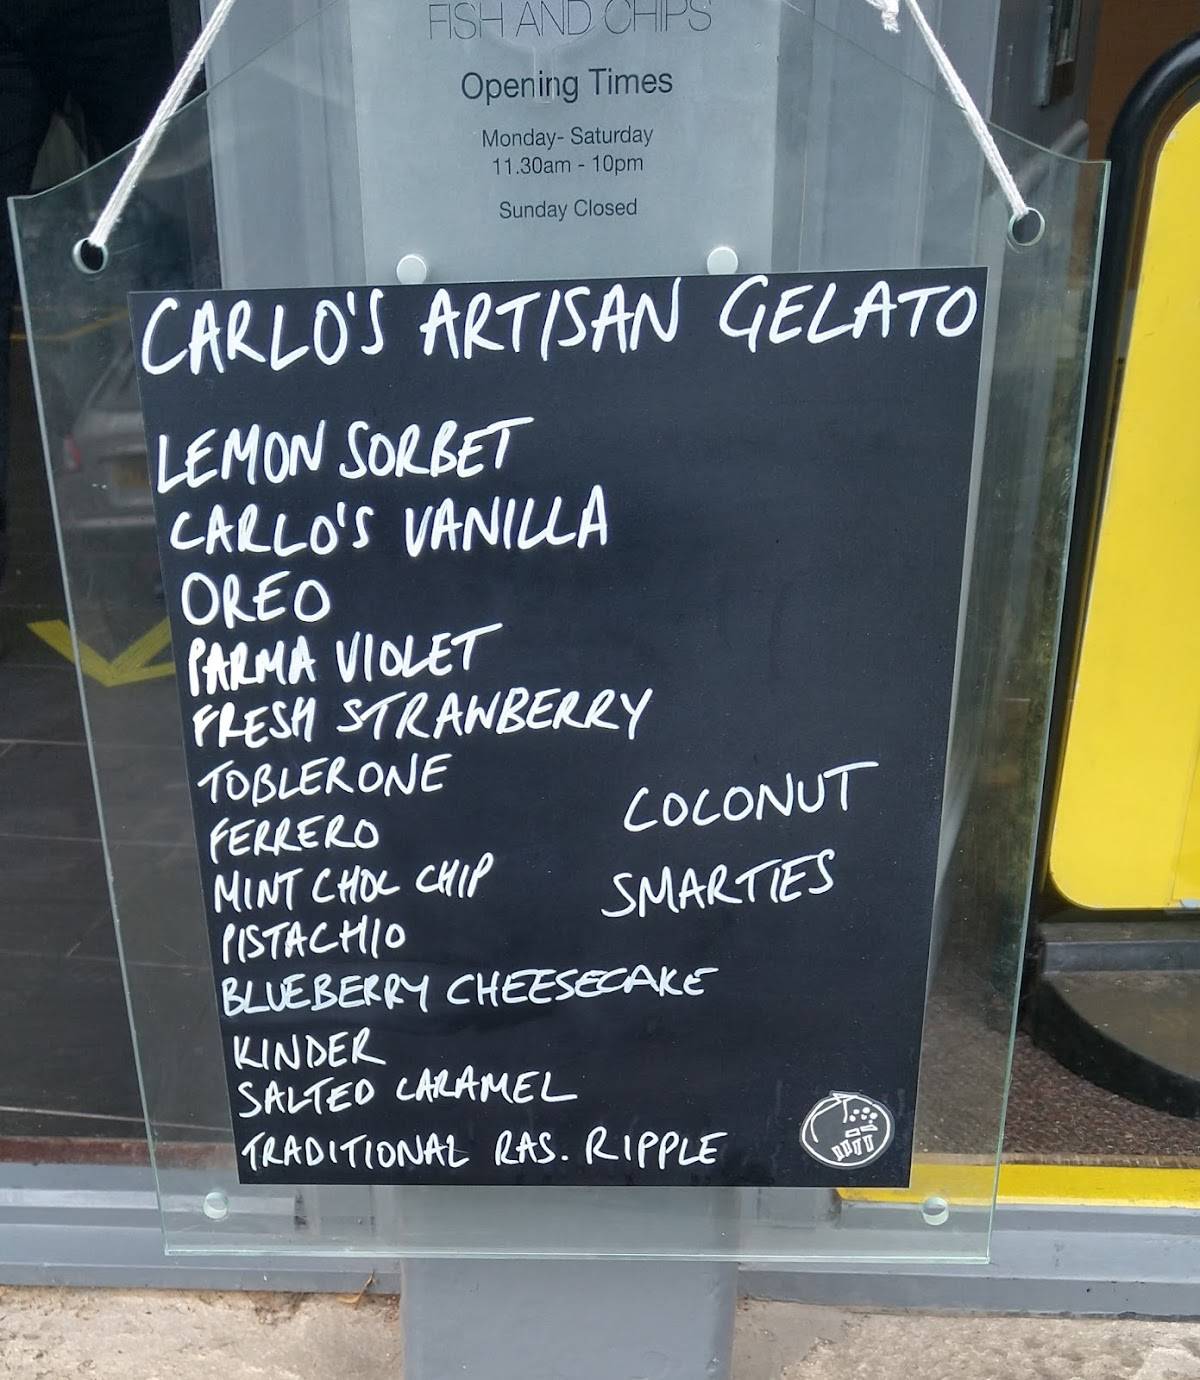 FISH AND CHIPS
Opening Times
Monday- Saturday
11.30am - 10pm
Sunday Closed
CARLO'S ARTISAN GELATO
LEMON SORBET
CARLO'S VANILLA
OREO
PARMA VIOLET
FRESH STRAWBERRY
TOBLERONE
FERRERO
MINT CHOC CHIP
PISTACHIO
BLUEBERRY CHEESECAKE
KINDER
SALTED CARAMEL
TRADITIONAL RAS. RIPPLE
COCONUT
SMARTIES